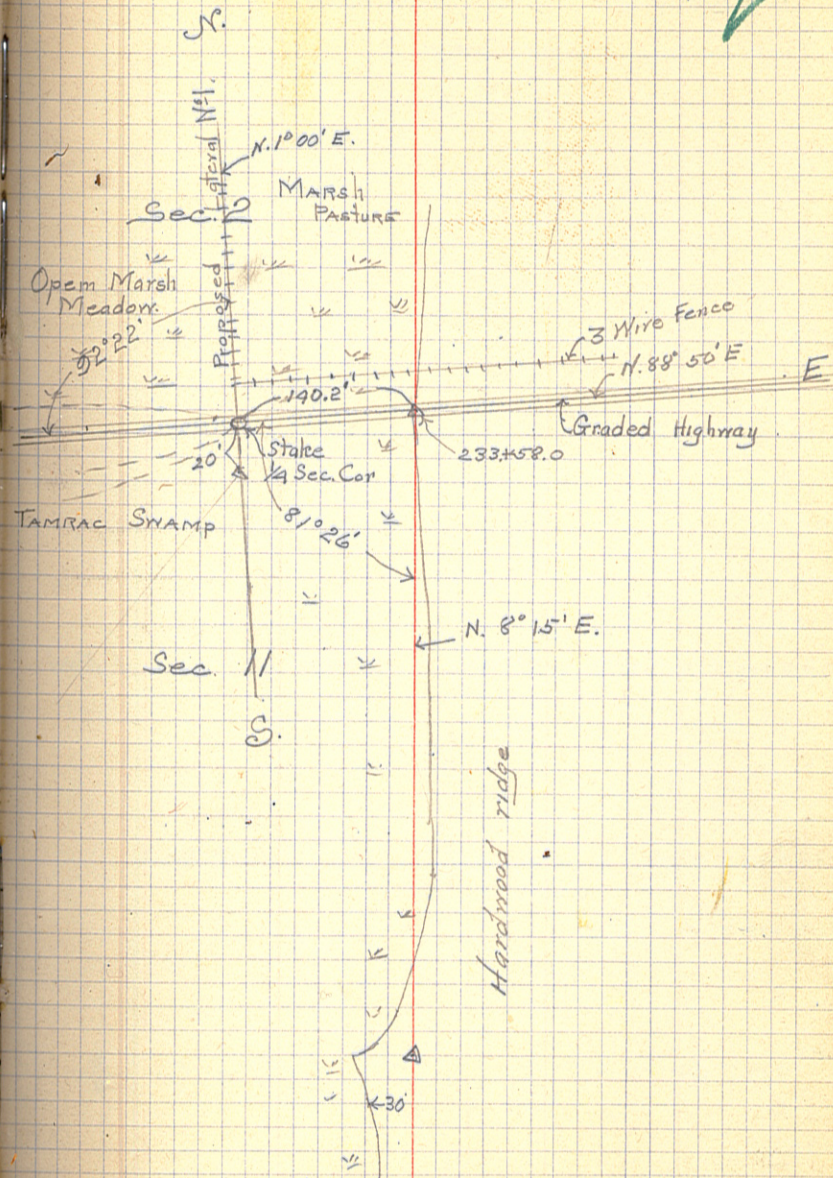 N.
Proposed Lateral No 1.
N. 1° 00' E.
Marsh
Pasture
Sec. 2
Opem Marsh
Meadow.
92° 22'
3 Wire Fence
N. 88° 50' E
E
140.2'
Graded Highway
20'
Stake
1/4 Sec. Cor
233+58.0
Tamrac Swamp
81° 26'
N. 8° 15' E.
Sec. 11
S.
Hardwood ridge
30'